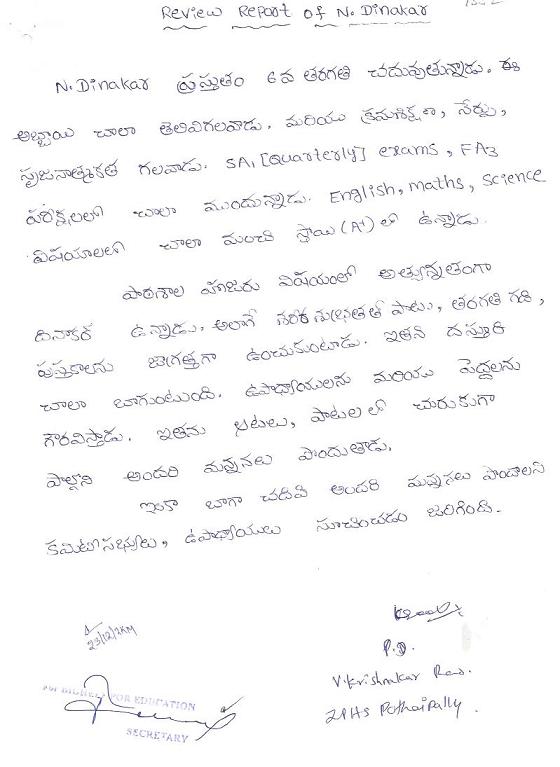 Review Report of N. Dinakar
N. Dinakar ప్రస్తుతం 6వ తరగతి చదువుతున్నాడు. ఈ
అబ్బాయి చాలా తెలివిగలవాడు. మరియు క్రమశిక్షణ, నేర్పు,
సృజనాత్మకత గలవాడు. SA, [Quarterly] exams, FA3
పరీక్షలలో చాలా ముందున్నాడు. English, maths, Science
విషయాలలో చాలా మంచి స్థాయి (A+) లో ఉన్నాడు.
పాఠశాల హాజరు విషయంలో అత్యున్నతంగా
దినాకర్ ఉన్నాడు. అలాగే పాటు, తరగతి గది,
పుస్తకాలను జాగ్రత్తగా ఉంచుకుంటాడు. ఇతని దస్తూరి
చాలా బాగుంటుంది. ఉపాధ్యాయులను మరియు పెద్దలను
గౌరవిస్తాడు. ఇతను ఆటలు, పాటలలో చురుకుగా
పాల్గొని అందరి మన్ననలు పొందుతాడు.
ఇంకా బాగా చదివి అందరి మన్ననలు పొందాలని
కమిటీ సభ్యులు, ఉపాధ్యాయులు సూచించడం జరిగింది.
23/12/
P.D.
V. Krishnakar Rao.
ZPHS Pothaipally.
FOR EDUCATION
SECRETARY